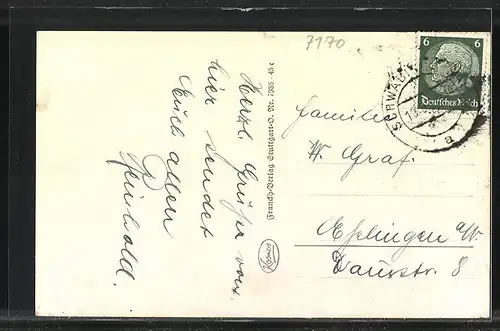 7170
Herzl. Grüsse von
hier sendet
Euch allen
Reinhold.
Franckh-Verlag Stuttgart-O. Nr. 7986 - 45
6 6
Deutsches Reich
SCHWÄ
a
Familie
W. Graf.
Eßlingen a/N.
8